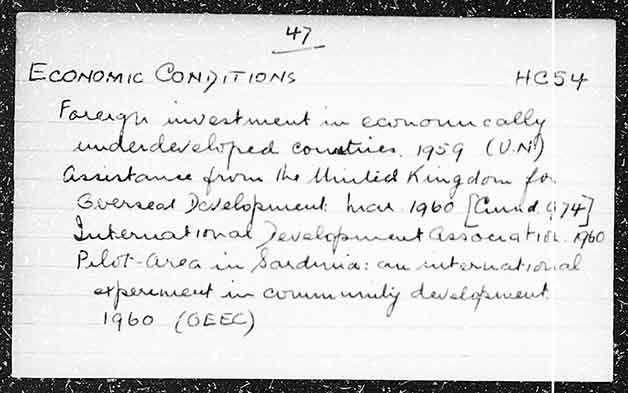 47
ECONOMIC CONDITIONS HC54
Foreign investment in economically
underdeveloped countries. 1959 (U.N.)
Assistance from the United Kingdom for
Overseas Development. Mar. 1960 [Cmnd. 974]
International Development Association. 1960
Pilot-area in Sardinia: an international
experiment in community development.
1960 (OEEC)